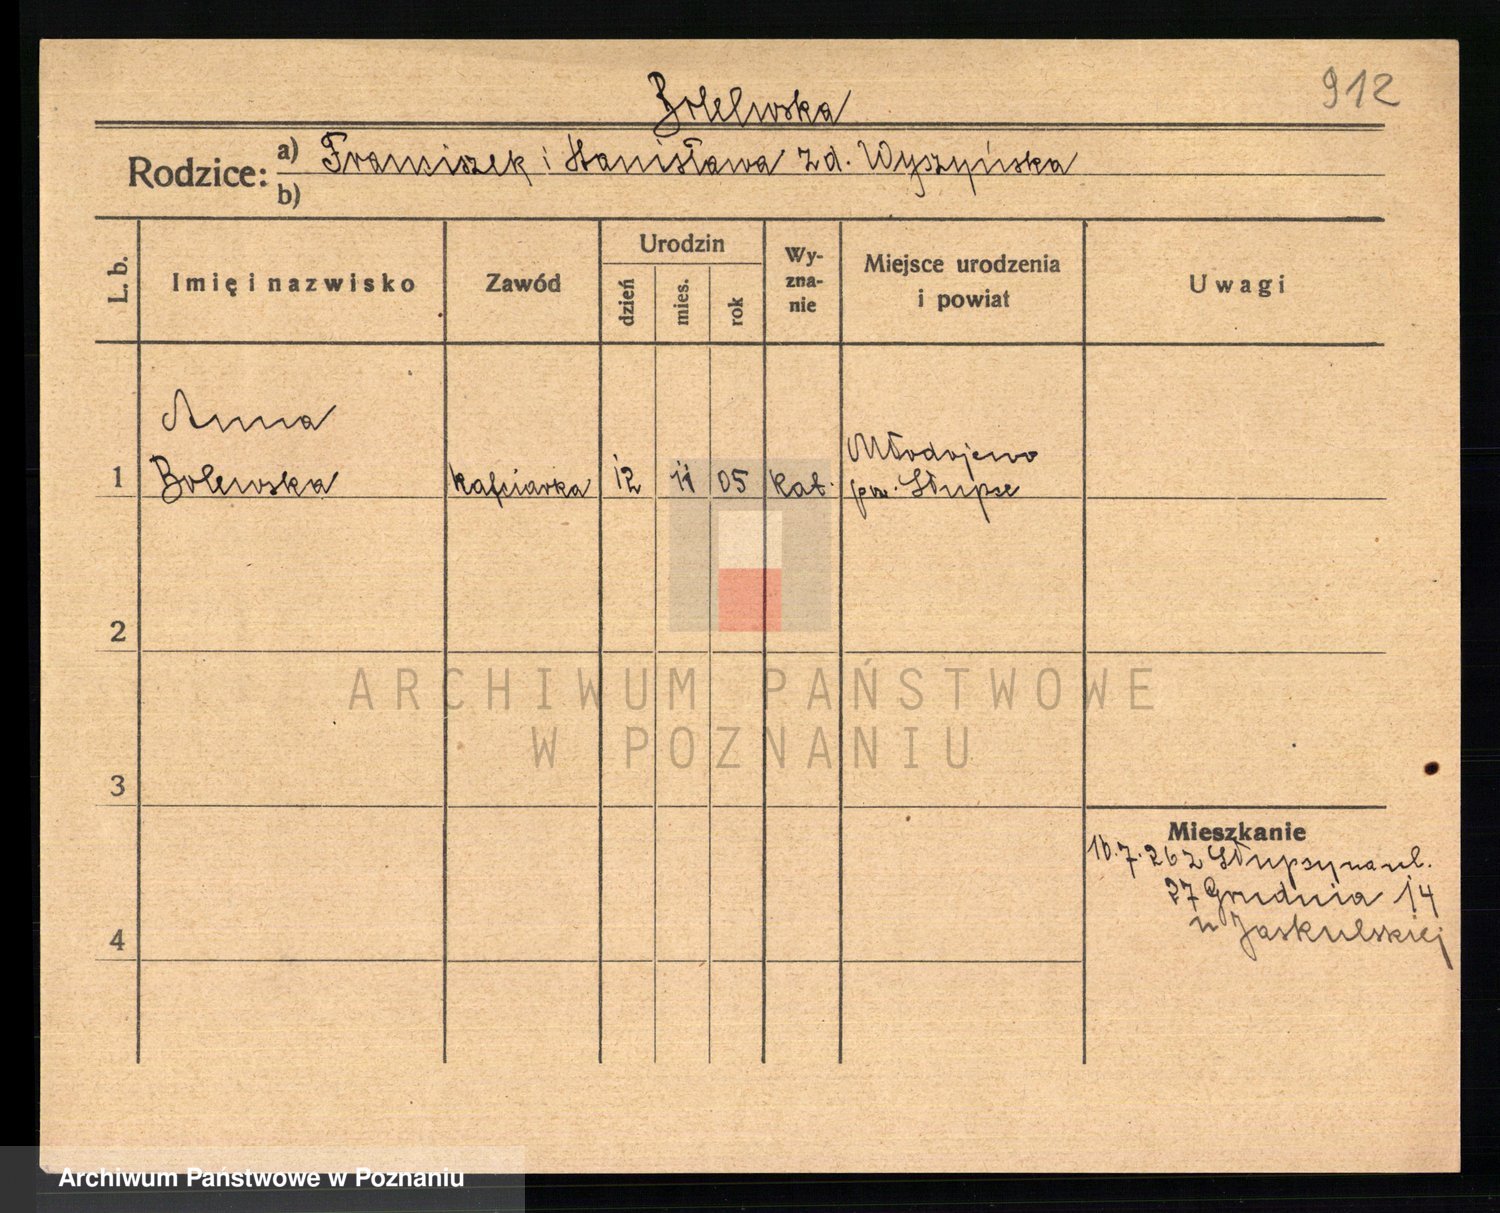 912
Bolewska
Rodzice: a) Franciszek i Stanisława z d. Wyszyńska
b)
L. b.
Imię i nazwisko
Zawód
Urodzin
dzień
mies.
rok
Wy-
zna-
nie
Miejsce urodzenia
i powiat
Uwagi
Anna
1 Bolewska hafciarka 12 11 05 kat.
Młodojewo
pow. Słupce
2
3
4
Mieszkanie
10.7. z Słupcy na ul.
27 Grudnia 14
u Jaskulskiej
ARCHIWUM PAŃSTWOWE
W POZNANIU
Archiwum Państwowe w Poznaniu